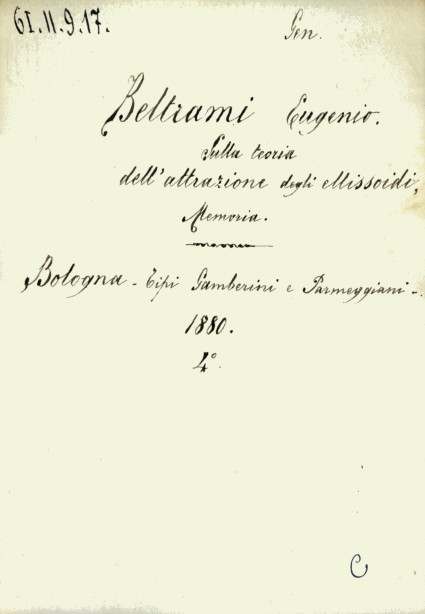 61.11.9.17.
Gen.
Beltrami Eugenio.
Sulla teoria
dell'attrazione degli ellissoidi,
Memoria.
Bologna - Tipi Gamberini e Parmeggiani -
1880.
4°
C